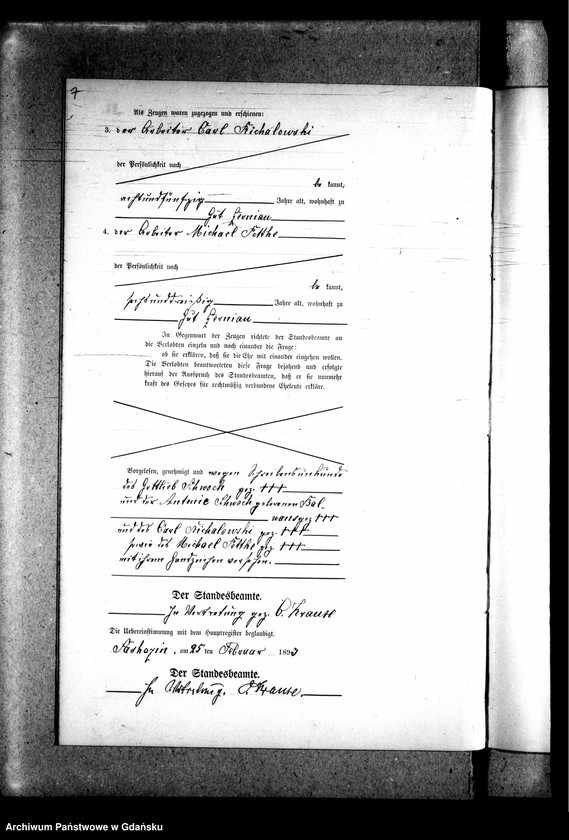 7
Als Zeugen waren zugezogen und erschienen:
3. der Arbeiter Carl Richalowski
der Persönlichkeit nach
be kannt,
achtundfünfzig Jahre alt, wohnhaft zu
Gut
4. der Arbeiter Michael
der Persönlichkeit nach
be kannt,
sechsunddreißig Jahre alt, wohnhaft zu
Gut
In Gegenwart der Zeugen richtete der Standesbeamte an
die Verlobten einzeln und nach einander die Frage:
ob sie erklären, daß sie die Ehe mit einander eingehen wollen.
Die Verlobten beantworteten diese Frage bejahend und erfolgte
hierauf der Ausspruch des Standesbeamten, daß er sie nunmehr
kraft des Gesetzes für rechtmäßig verbundene Eheleute erkläre.
Vorgelesen, genehmigt und wegen Schreibensunkunde
des Gottlieb Schwoch gez. +++
und der Antonie Schwoch geborenen Bal-
gez +++
und des Carl Richalowski gez. +++
sowie des Michael gez +++
mit ihrem Handzeichen versehen.
Der Standesbeamte.
In Vertretung gez. Krause
Die Uebereinstimmung mit dem Hauptregister beglaubigt.
am 25 ten Februar 1893
Der Standesbeamte.
In Vertretung. Krause.
Archiwum Państwowe w Gdańsku